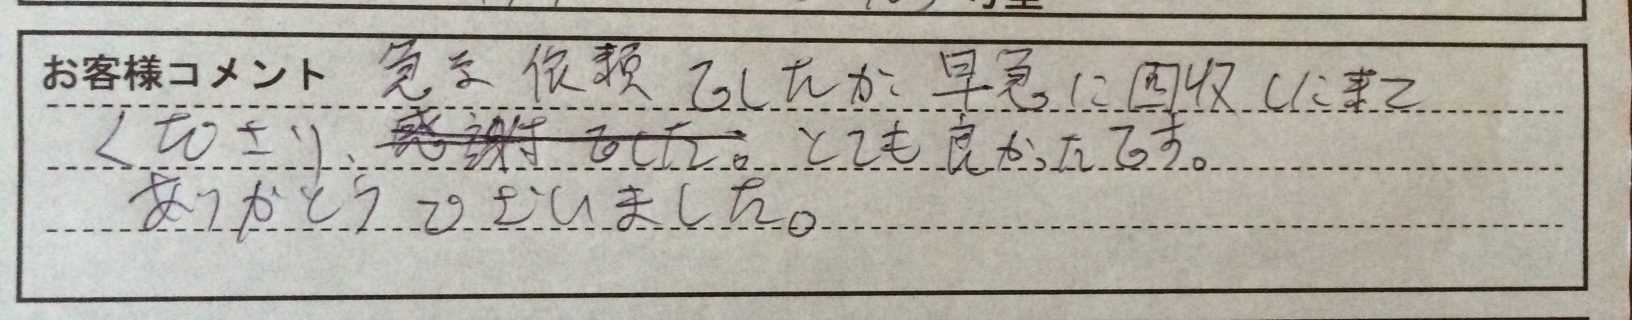 お客様コメント 急な依頼でしたが早急に回収しにきて
くださり、感謝でした。とても良かったです。
ありがとうございました。